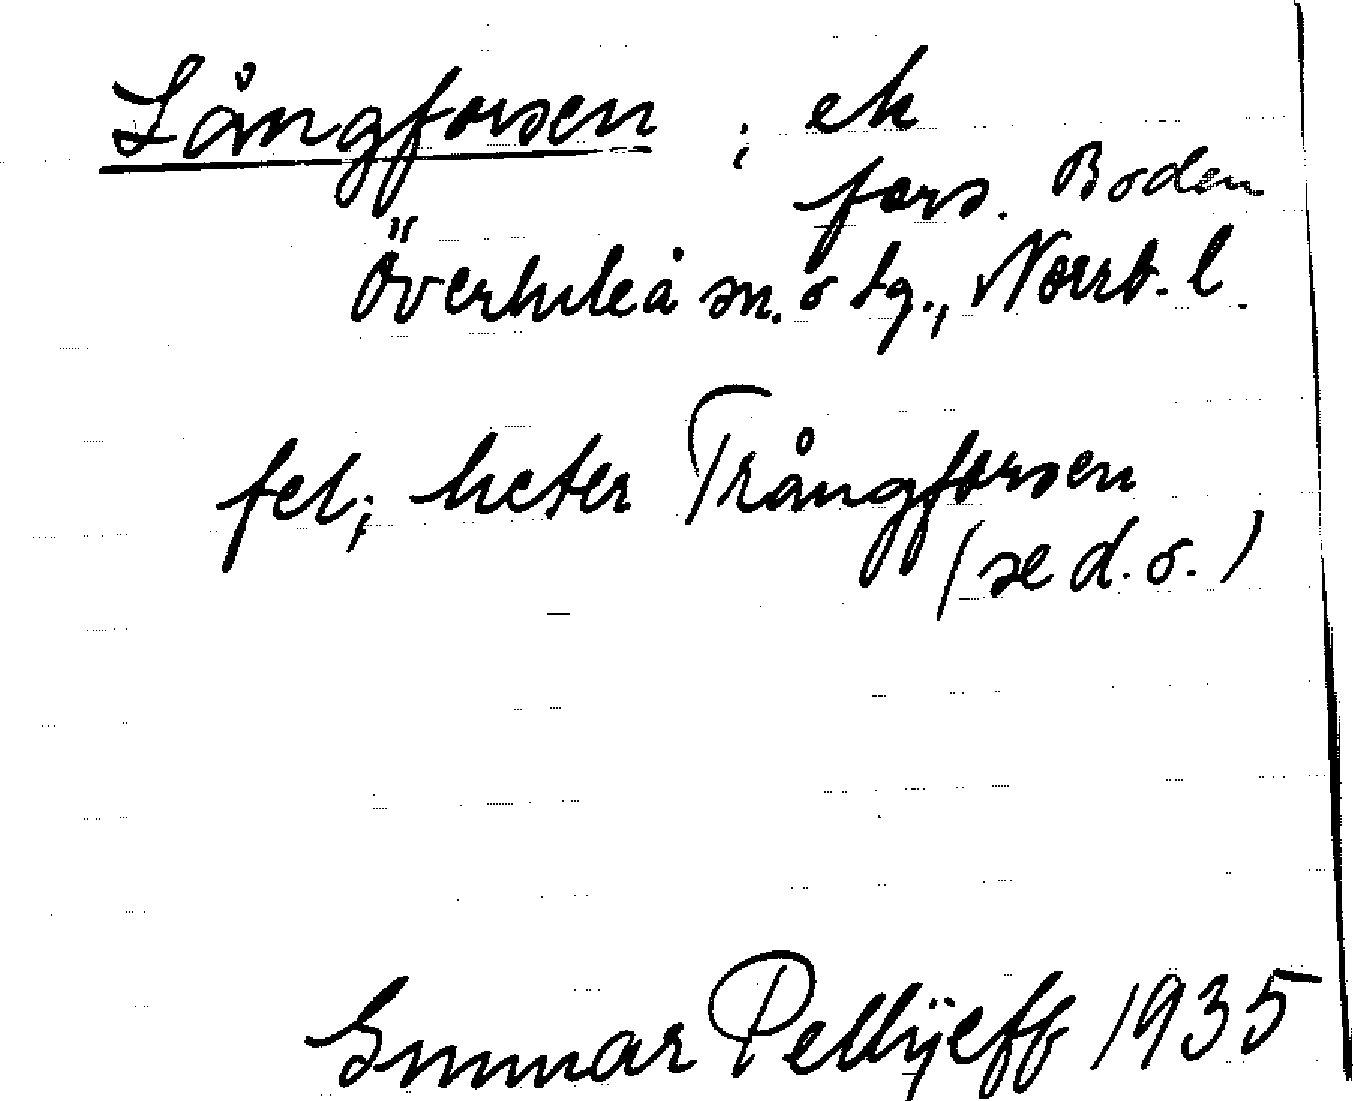 Långforsen ; ek
fors. Boden
Överluleå sn. o tg., Norrb. l.
fel; heter Trångforsen
(se d. o.)
Gunnar Pellijeff 1935